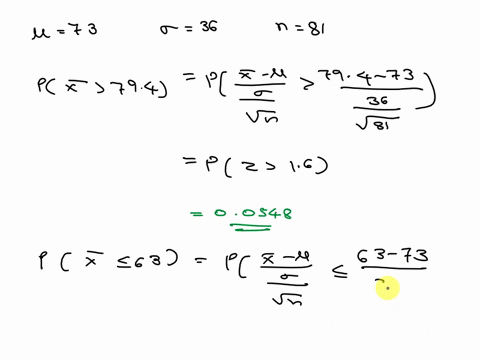 μ = 73 σ = 36 n = 81
P( x̄ > 79.4) = P( (x̄ - μ)/(σ/√n) > (79.4 - 73)/(36/√81) )
= P( z > 1.6)
= 0.0548
P( x̄ ≤ 63) = P( (x̄ - μ)/(σ/√n) ≤ (63 - 73)/